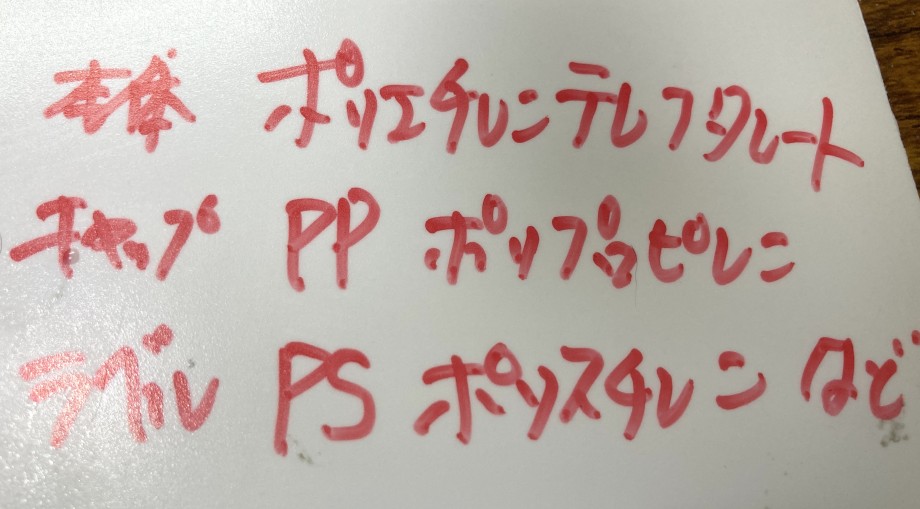 本体 ポリエチレンテレフタレート
キャップ PP ポリプロピレン
ラベル PS ポリスチレン など